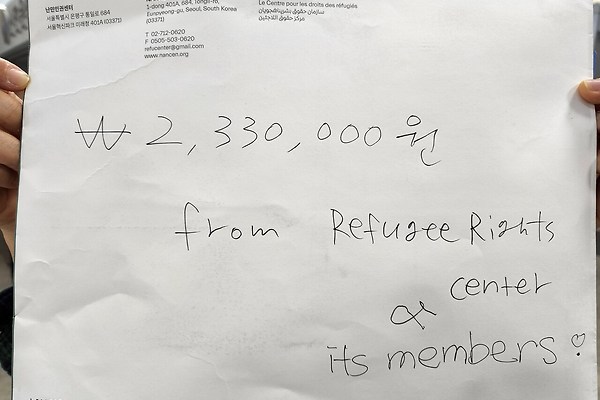 난민인권센터
서울특별시 은평구 통일로 684
서울혁신파크 미래청 401A (03371)
1-dong 401A, 684, Tongil-ro,
Eunpyeong-gu, Seoul, South Korea
(03371)
T 02-712-0620
F 0505-503-0620
refucenter@gmail.com
www.nancen.org
Le Centre pour les droits des réfugiés
سازمان حقوق پناهجویان
مركز حقوق اللاجئين
₩ 2,330,000 원
from Refugee Rights
center
&
its members ♡